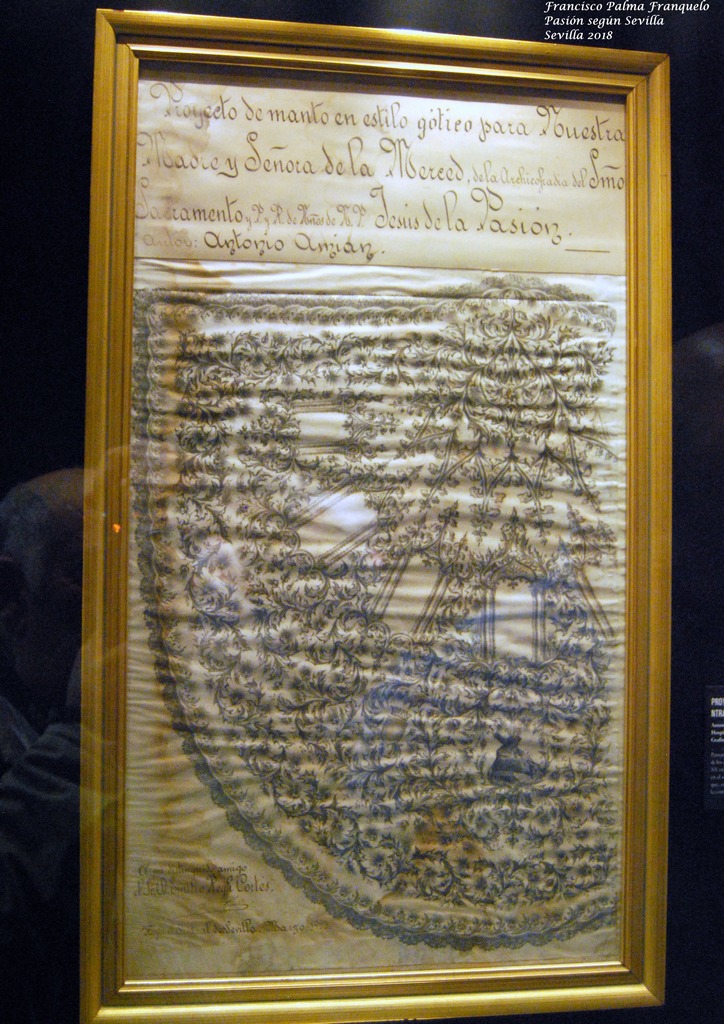 Francisco Palma Franquelo
Pasión según Sevilla
Sevilla 2018
Proyecto de manto en estilo gótico para Nuestra
Madre y Señora de la Merced, de la Archicofradia del Smo
Sacramento y P. y R. de Ntros de N. P. Jesús de la Pasión.
autor: Antonio Amián.
amigo
Cortes.
Sevilla. Marzo